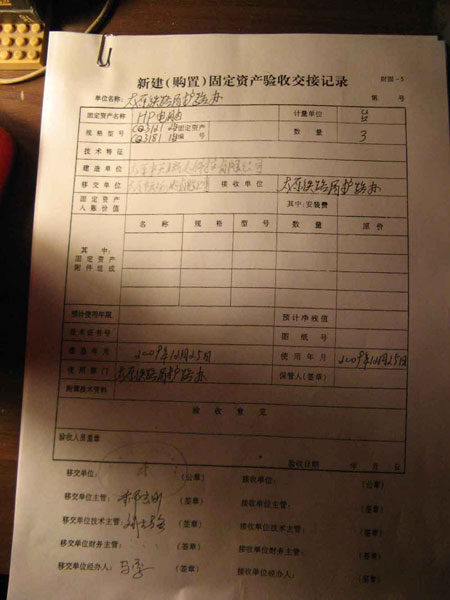 新建(购置)固定资产验收交接记录 财固-5
单位名称: 太原铁路局护路办 第 号
固定资产名称 HP电脑 计量单位 台
规格型号 CQ3181 2台 CQ3181 1台 固定资产编号 数量 3
技术特征
建造单位
移交单位 接收单位 太原铁路局护路办
固定资产入账价值 其中:安装费
其中:固定资产附件组成 名称 规格 型号 数量 原价
预计使用年限 预计净残值
技术证书号 图纸号
建造年月 2009年12月25日 使用年月 2009年12月25日
使用部门 太原铁路局护路办 保管人(签章)
附属技术资料
验收意见
验收人员盖章
验收日期 年 月 日
移交单位: (公章) 接收单位: (公章)
移交单位主管: (签章) 接收单位主管: (签章)
移交单位技术主管: (签章) 接收单位技术主管: (签章)
移交单位财务主管: (签章) 接收单位财务主管: (签章)
移交单位经办人: (签章) 接收单位经办人: (签章)